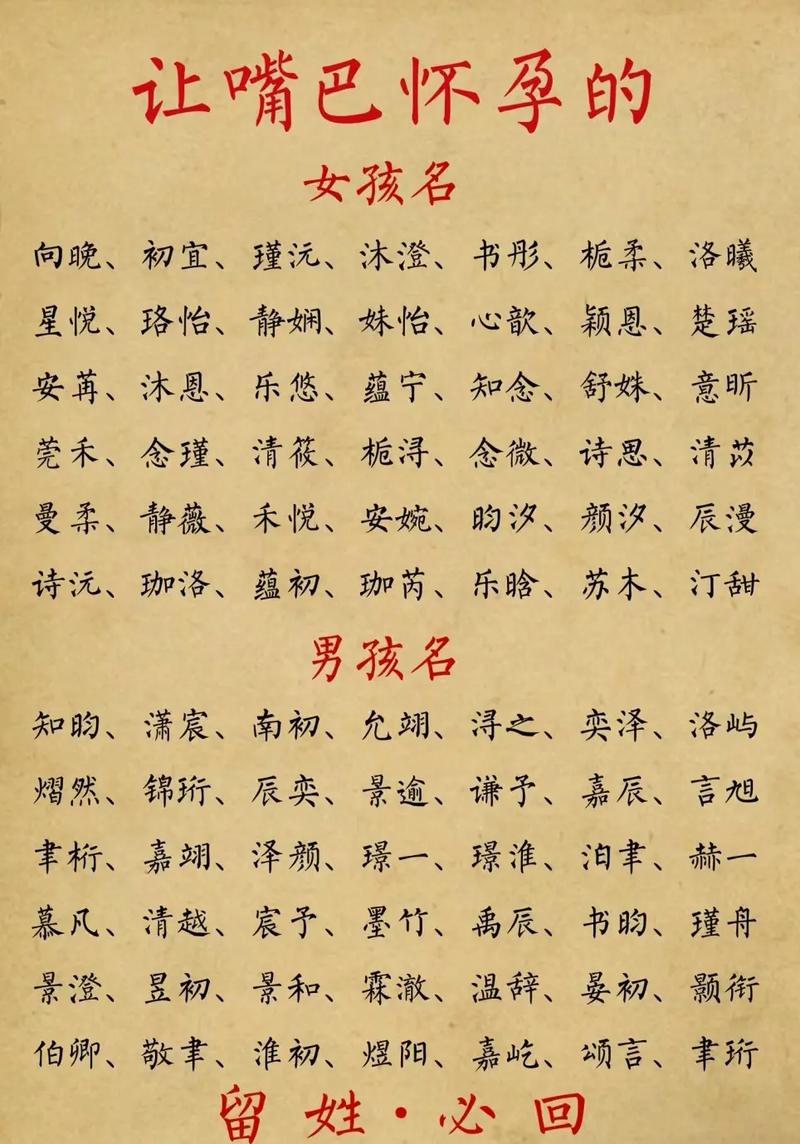 让嘴巴怀孕的
女孩名
向晚、初宜、瑾沅、沐澄、书彤、栀柔、洛曦
星悦、珞怡、静娴、姝怡、心歆、颖恩、楚瑶
安苒、沐恩、乐悠、蕴宁、知念、舒姝、意昕
莞禾、念瑾、清筱、栀浔、念微、诗思、清苡
曼柔、静薇、禾悦、安婉、昀汐、颜汐、辰漫
诗沅、珈洛、蕴初、珈芮、乐晗、苏木、汀甜
男孩名
知昀、潇宸、南初、允翊、浔之、奕泽、洛屿
熠然、锦珩、辰奕、景逾、谦予、嘉辰、言旭
聿桁、嘉翊、泽颜、璟一、璟淮、泊聿、赫一
慕凡、清越、宸予、墨竹、禹辰、书昀、瑾舟
景澄、昱初、景和、霖澈、温辞、晏初、颢衔
伯卿、敬聿、淮初、煜阳、嘉屹、颂言、聿珩
留姓·必回